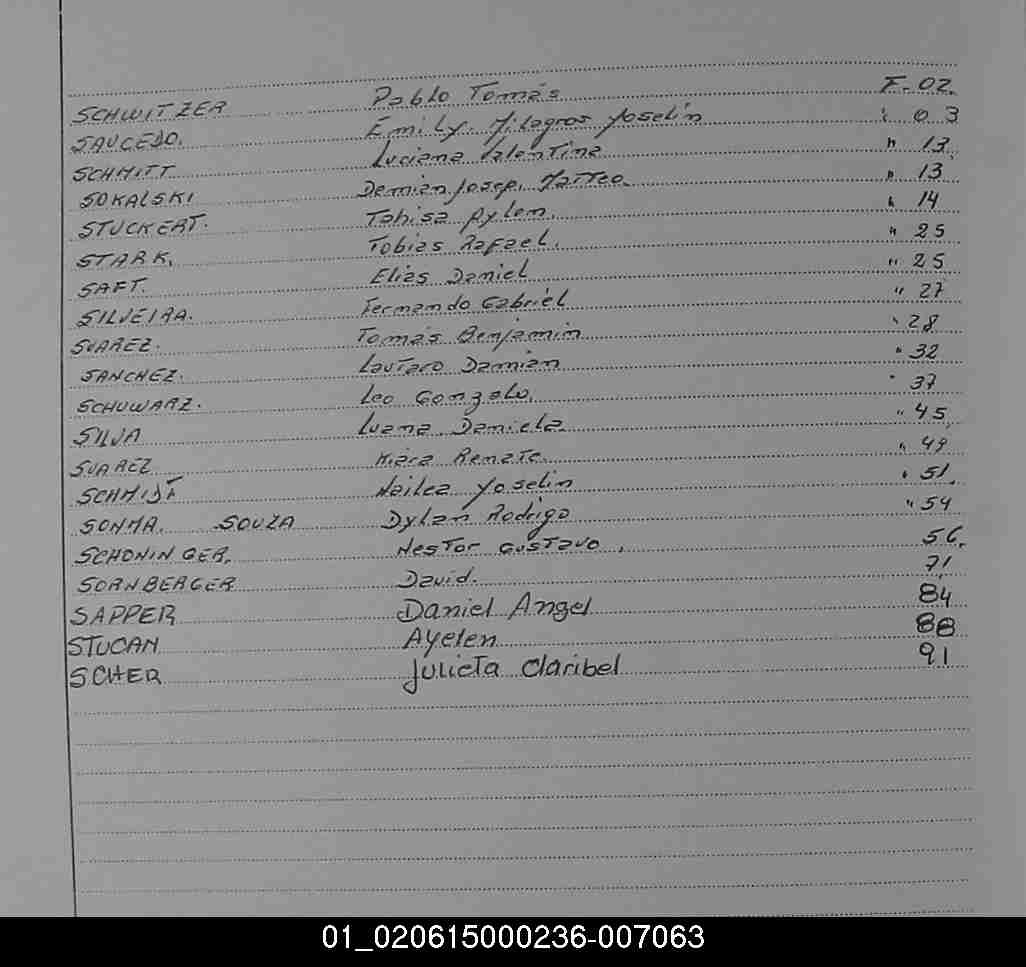 SCHWITZER Pablo Tomás F- 02.
SAUCEDO. Emily. Milagros Yoselin " 03
SCHMITT Luciana Valentina " 13
SOKALSKI Demian Josep. Matteo. " 13
STUCKERT. Tahisa Aylen. " 14
STARK. Tobias Rafael. " 25
SAFT. Elias Daniel " 25
SILVEIRA. Fernando Gabriel " 27
SUAREZ. Tomás Benjamin " 28
SANCHEZ. Lautaro Damian " 32
SCHUWARZ. Leo Gonzalo. " 37
SILVA Luana Daniela " 45
SUAREZ Kiara Renata. " 49
SCHMIDT Nailea Yoselin " 51.
SONMA. SOUZA Dylan Rodrigo " 54
SCHONINGER. Nestor Gustavo. 56.
SORNBERGER David. 71
SAPPER Daniel Angel 84
STUCAN Ayelen 88
SCHER Julieta Claribel 91
01_020615000236-007063